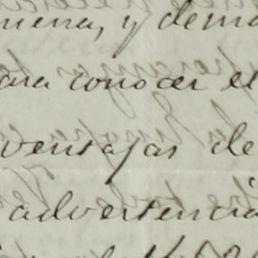 mena, y dema
para conocer el
ventajas de
advertencia